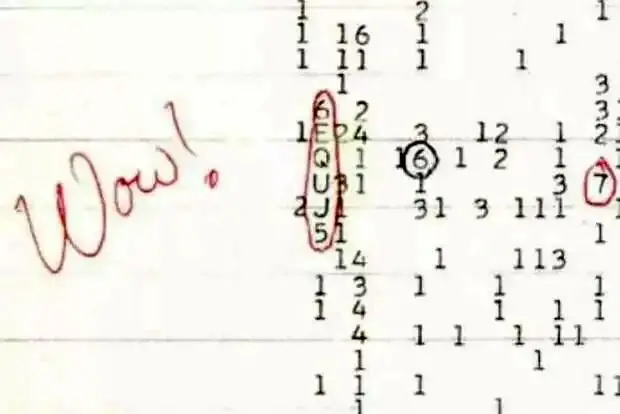 Wow!
1 2 1
1 16 1 1
1 11 1 1
1 3
6 2 3
1E24 3 12 1 2
Q 1 16 1 2 1 1
U31 1 3 7
2J1 31 3 111
51 1
14 1 113
1 3 1 1 1
1 4 1 1 1
4 1 1 1 11
1 1
1 1 1 11
1 1